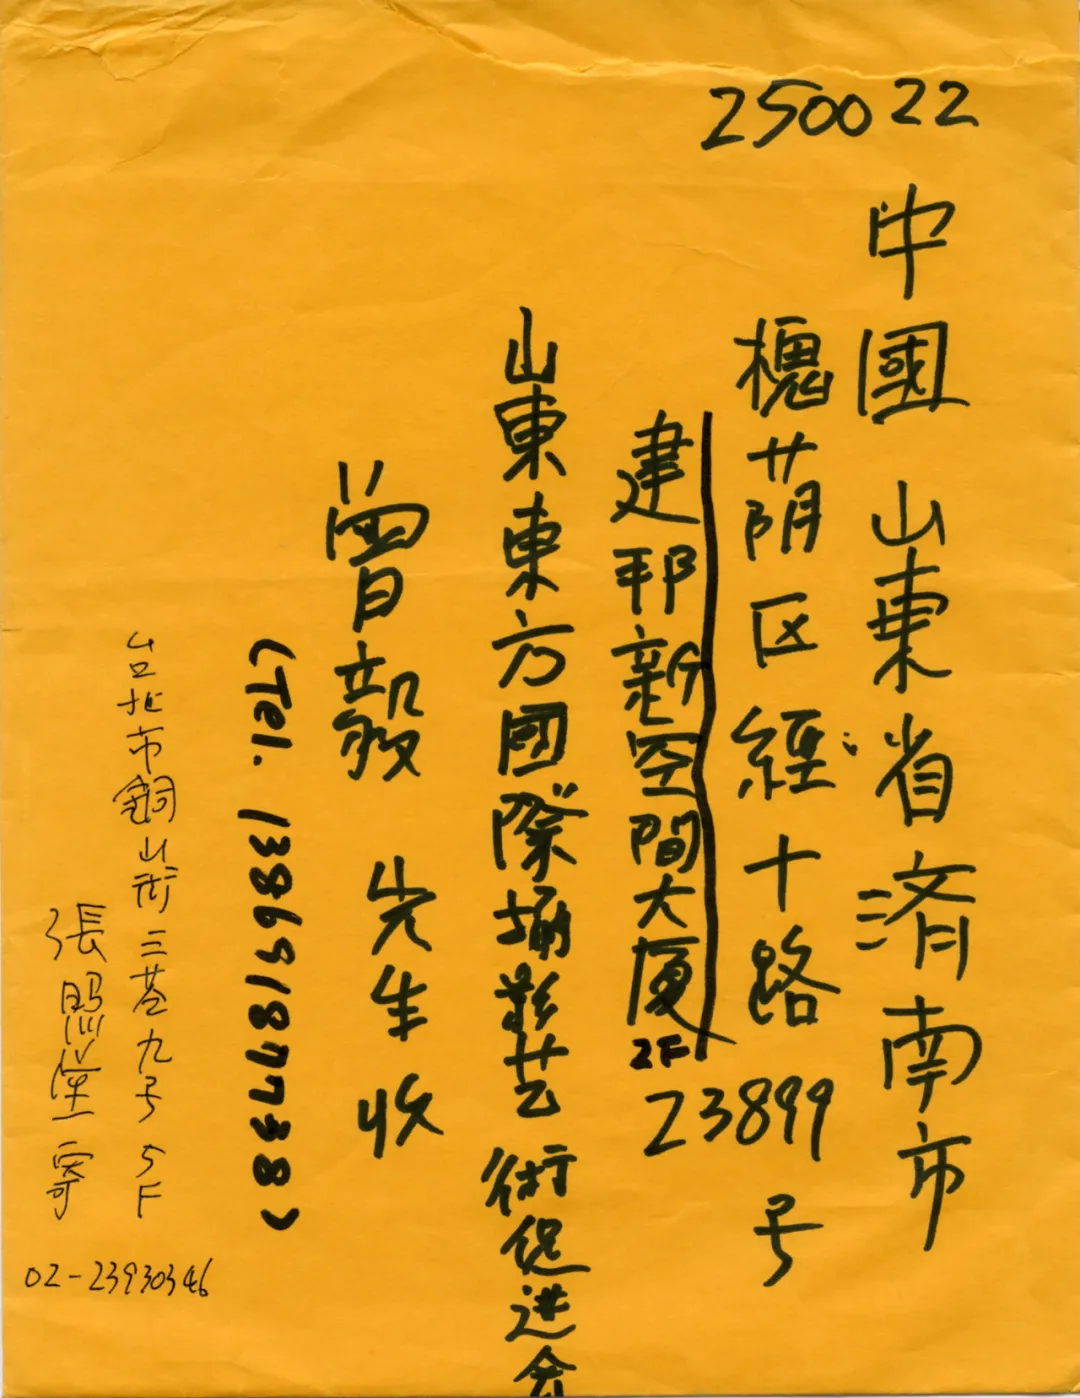 250022
中國山東省济南市
槐荫区經十路
23899
号
建邦新空間大厦
2F
山東東方國際攝影艺術促进会
曾毅先生收
(Tel. 13869184738)
台北市銅山街三巷九号5F
張照堂寄
02-23930346